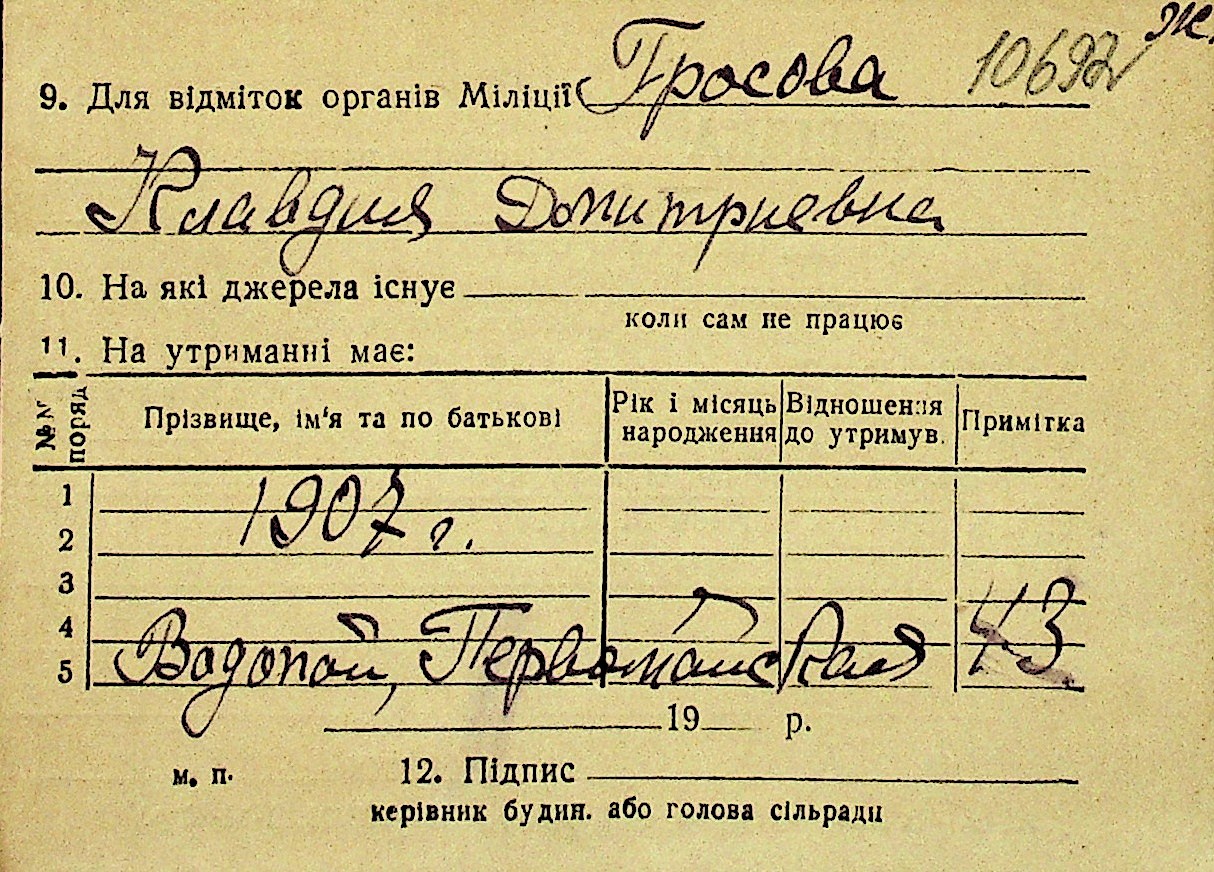 ж.
9. Для відміток органів Міліції Гросова 10692
Клавдия Дмитриевна
10. На які джерела існує
коли сам не працює
11. На утриманні має:
№№ поряд Прізвище, ім'я та по батькові Рік і місяць народження Відношення до утримув. Примітка
1
1907 г.
2
3
4
5 Водопой, Первомайская 43
19 р.
м. п. 12. Підпис
керівник будин. або голова сільради